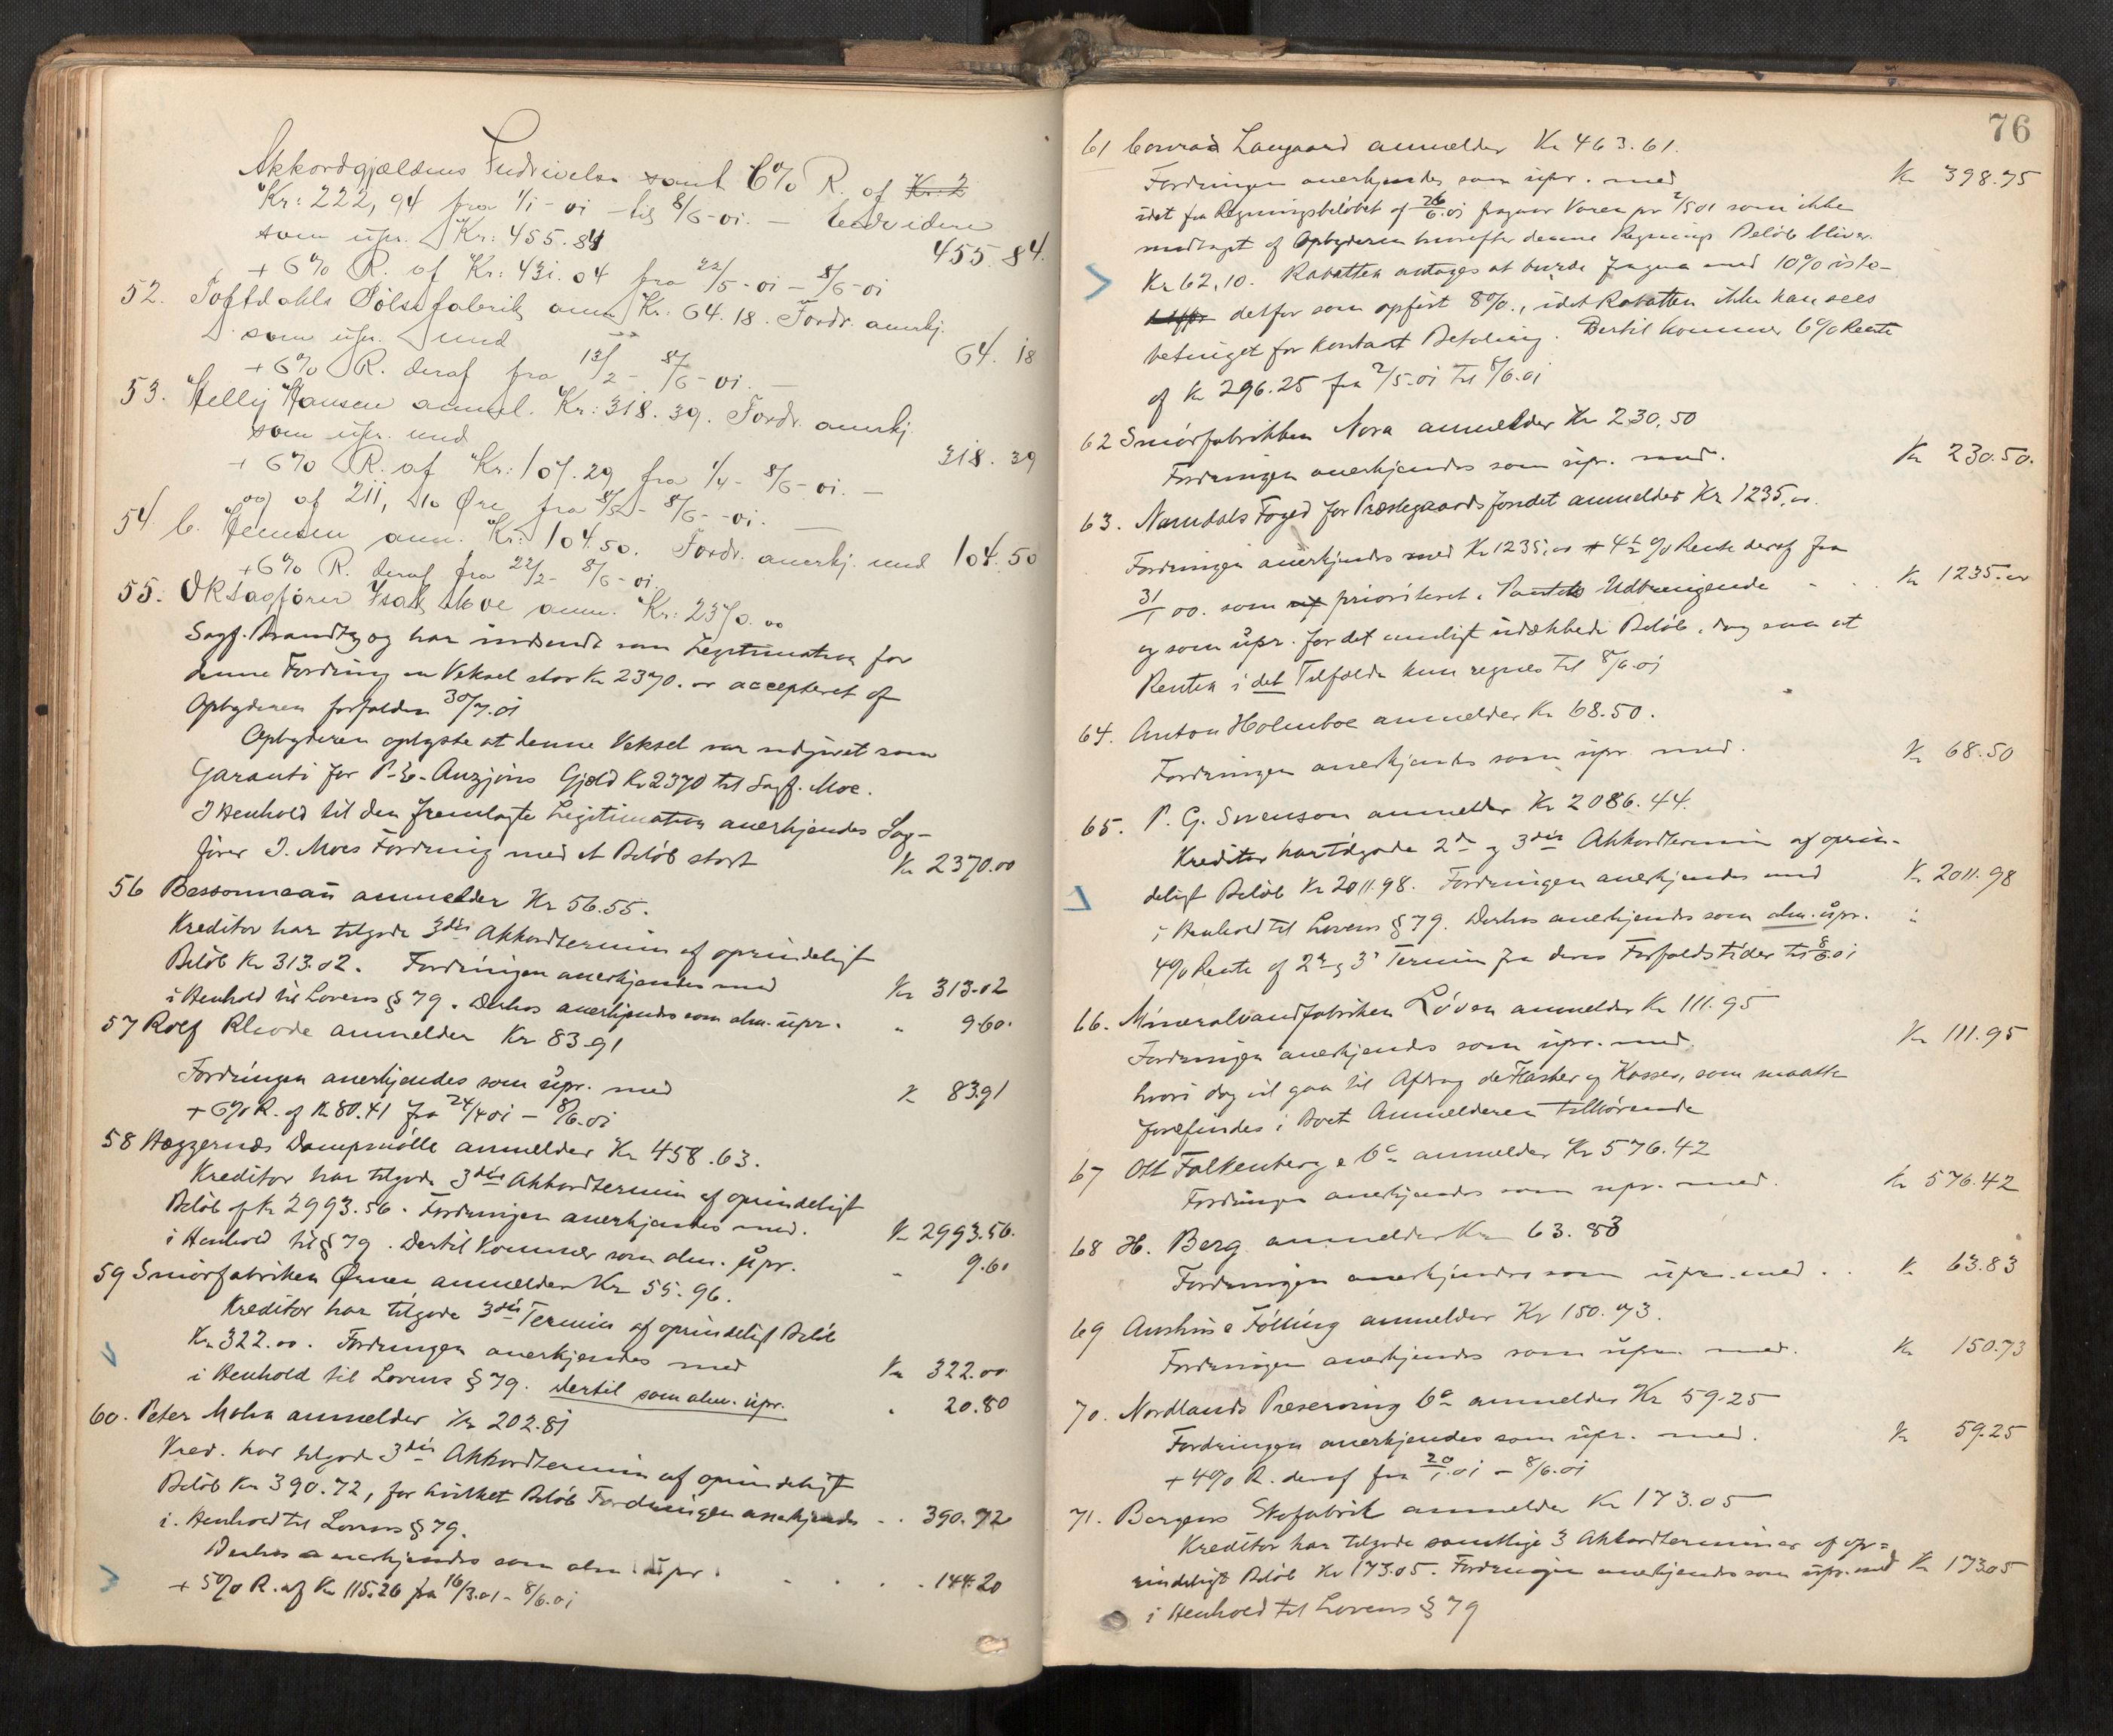 Akkordgjældens Inddrivelse samt 6% R. af Kr. 2
Kr: 222,94 fra 1/1-01 til 8/6-01. — Endvidere
som upr. Kr: 455.84 455.84.
+ 6% R. af Kr: 431.04 fra 22/5-01 - 8/6-01
52. Toftdahls Pølsefabrik anm. Kr: 64.18. Fordr. anerkj.
som upr. med 64.18
+ 6% R. deraf fra 13/2 - 8/6-01. —
53. Helly Hansen anmel. Kr: 318.39. Fordr. anerkj.
som upr. med 318.39
+ 6% R. af Kr: 107.29 fra 1/4 - 8/6-01. —
og af 211,10 Øre fra 8/5 - 8/6-01. —
54. C. Hemsen anm. Kr: 104.50. Fordr. anerkj. med 104.50
+6% R. deraf fra 22/2 - 8/6-01.
55. Oksagfører Isak Moe anm. Kr: 2370.00
Sagf. Brandtzæg har indsendt som Legitimation for
denne Fordring en Veksel stor Kr 2370.00 accepteret af
Opbyderen forfalden 30/7.01
Opbyderen oplyste at denne Veksel var udgivet som
Garanti for P. E. Gjæld Kr 2370 til Sagf. Moe.
I Henhold til den fremlagte Legitimation anerkjendes Sag-
fører I. Moes Fordring med et Beløb stort Kr 2370.00
56 Bessonneau anmelder Kr 56.55.
Kreditor har tilgode 3die Akkordtermin af oprindeligt
Beløb Kr 313.02. Fordringen anerkjendes med Kr 313.02
i Henhold til Lovens § 79. Derhos anerkjendes som alm. upr. " 9.60.
57 Rolf Rhode anmelder Kr 83.91
Fordringen anerkjendes som upr. med Kr 83.91
+ 6% R. af Kr 80.41 fra 24/4 01 - 8/6.01
58 Hæggernæs Dampmølle anmelder Kr 458.63.
Kreditor har tilgode 3die Akkordtermin af oprindeligt
Beløb af Kr 2993.56. Fordringen anerkjendes med. Kr 2993.56.
i Henhold til § 79. Dertil kommer som alm. upr. " 9.60
59 Smørfabriken Ørnen anmelder Kr 55.96.
Kreditor har tilgode 3die Termin af oprindeligt Beløb
Kr 322.00. Fordringen anerkjendes med Kr 322.00
i Henhold til Lovens § 79. Dertil som alm. upr. " 20.80
60. Peter Mohn anmelder Kr 202.81
Kred. har tilgode 3die Akkordtermin af oprindeligt
Beløb Kr 390.72, for hvilket Beløb Fordringen anerkjendes . . 390.72
i Henhold til Lovens § 79.
Derhos anerkjendes som alm. upr. . . . 144.20
+ 5% R. af Kr 115.26 fra 16/3.01 - 8/6.01
76
61 Conrad Langaard anmelder Kr 463.61.
Fordringen anerkjendes som upr. med Kr 398.75
idet fra Regningsbeløbet af 26/6.01 fragaar Varen pr 2/5 01 som ikke
modtaget af Opbyderen hvorefter denne Regnings Beløb bliver
Kr 62,10. Rabatten antages at burde fragaa med 10% iste-
detfor som opført 8%, idet Rabatten ikke kan sees
betinget for kontant Betaling. Dertil kommer 6% Rente
af Kr 296.25 fra 2/5.01 til 8/6.01
62 Smørfabrikken Nora anmelder Kr 230,50
Fordringen anerkjendes som upr. med. Kr 230.50.
63. Namdals Foged for Præstegaardsfondet anmelder Kr 1235,00.
Fordringen anerkjendes med Kr 1235,00 + 4½% Rente deraf fra
31/1 00. som prioriteret i Pantets Udbringende . . Kr 1235.00
og som upr. for det muligt udækkede Beløb, dog saa at
Renten i det Tilfælde kun regnes til 8/6.01
64. Anton Holmboe anmelder Kr 68.50.
Fordringen anerkjendes som upr. med. Kr 68.50
65. P. G. Svenson anmelder Kr 2086.44.
Kreditor har tilgode 2den og 3die Akkordtermin af oprin-
deligt Beløb Kr 2011.98. Fordringen anerkjendes med Kr 2011.98
i Henhold til Lovens § 79. Derhos anerkjendes som alm. upr. "
4% Rente af 2d og 3d Termin fra deres Forfaldstider til 8/6.01
66. Mineralvandfabriken Løven anmelder Kr 111.95
Fordringen anerkjendes som upr. med. Kr 111.95
hvori dog vil gaa til Afdrag de Flasker og Kasser, som maatte
forefindes i Boet Anmelderen tilhørende
67 Ott Falkenberg & Co anmelder Kr 576.42
Fordringen anerkjendes som upr. med. Kr 576.42
68 H. Berg anmelder Kr 63.83
Fordringen anerkjendes som upr. med . . Kr 63.83
69 & Følling anmelder Kr 150.73.
Fordringen anerkjendes som upr. med. Kr 150.73
70. Nordlands Preserving Co anmelder Kr 59.25
Fordringen anerkjendes som upr. med. Kr 59.25
+ 4% R. deraf fra 20/1.01 - 8/6.01
71. Bergens Skofabrik anmelder Kr 173.05
Kreditor har tilgode samtlige 3 Akkordterminer af op=
rindeligt Beløb Kr 173.05. Fordringen anerkjendes som upr. med Kr 173.05
i Henhold til Lovens § 79